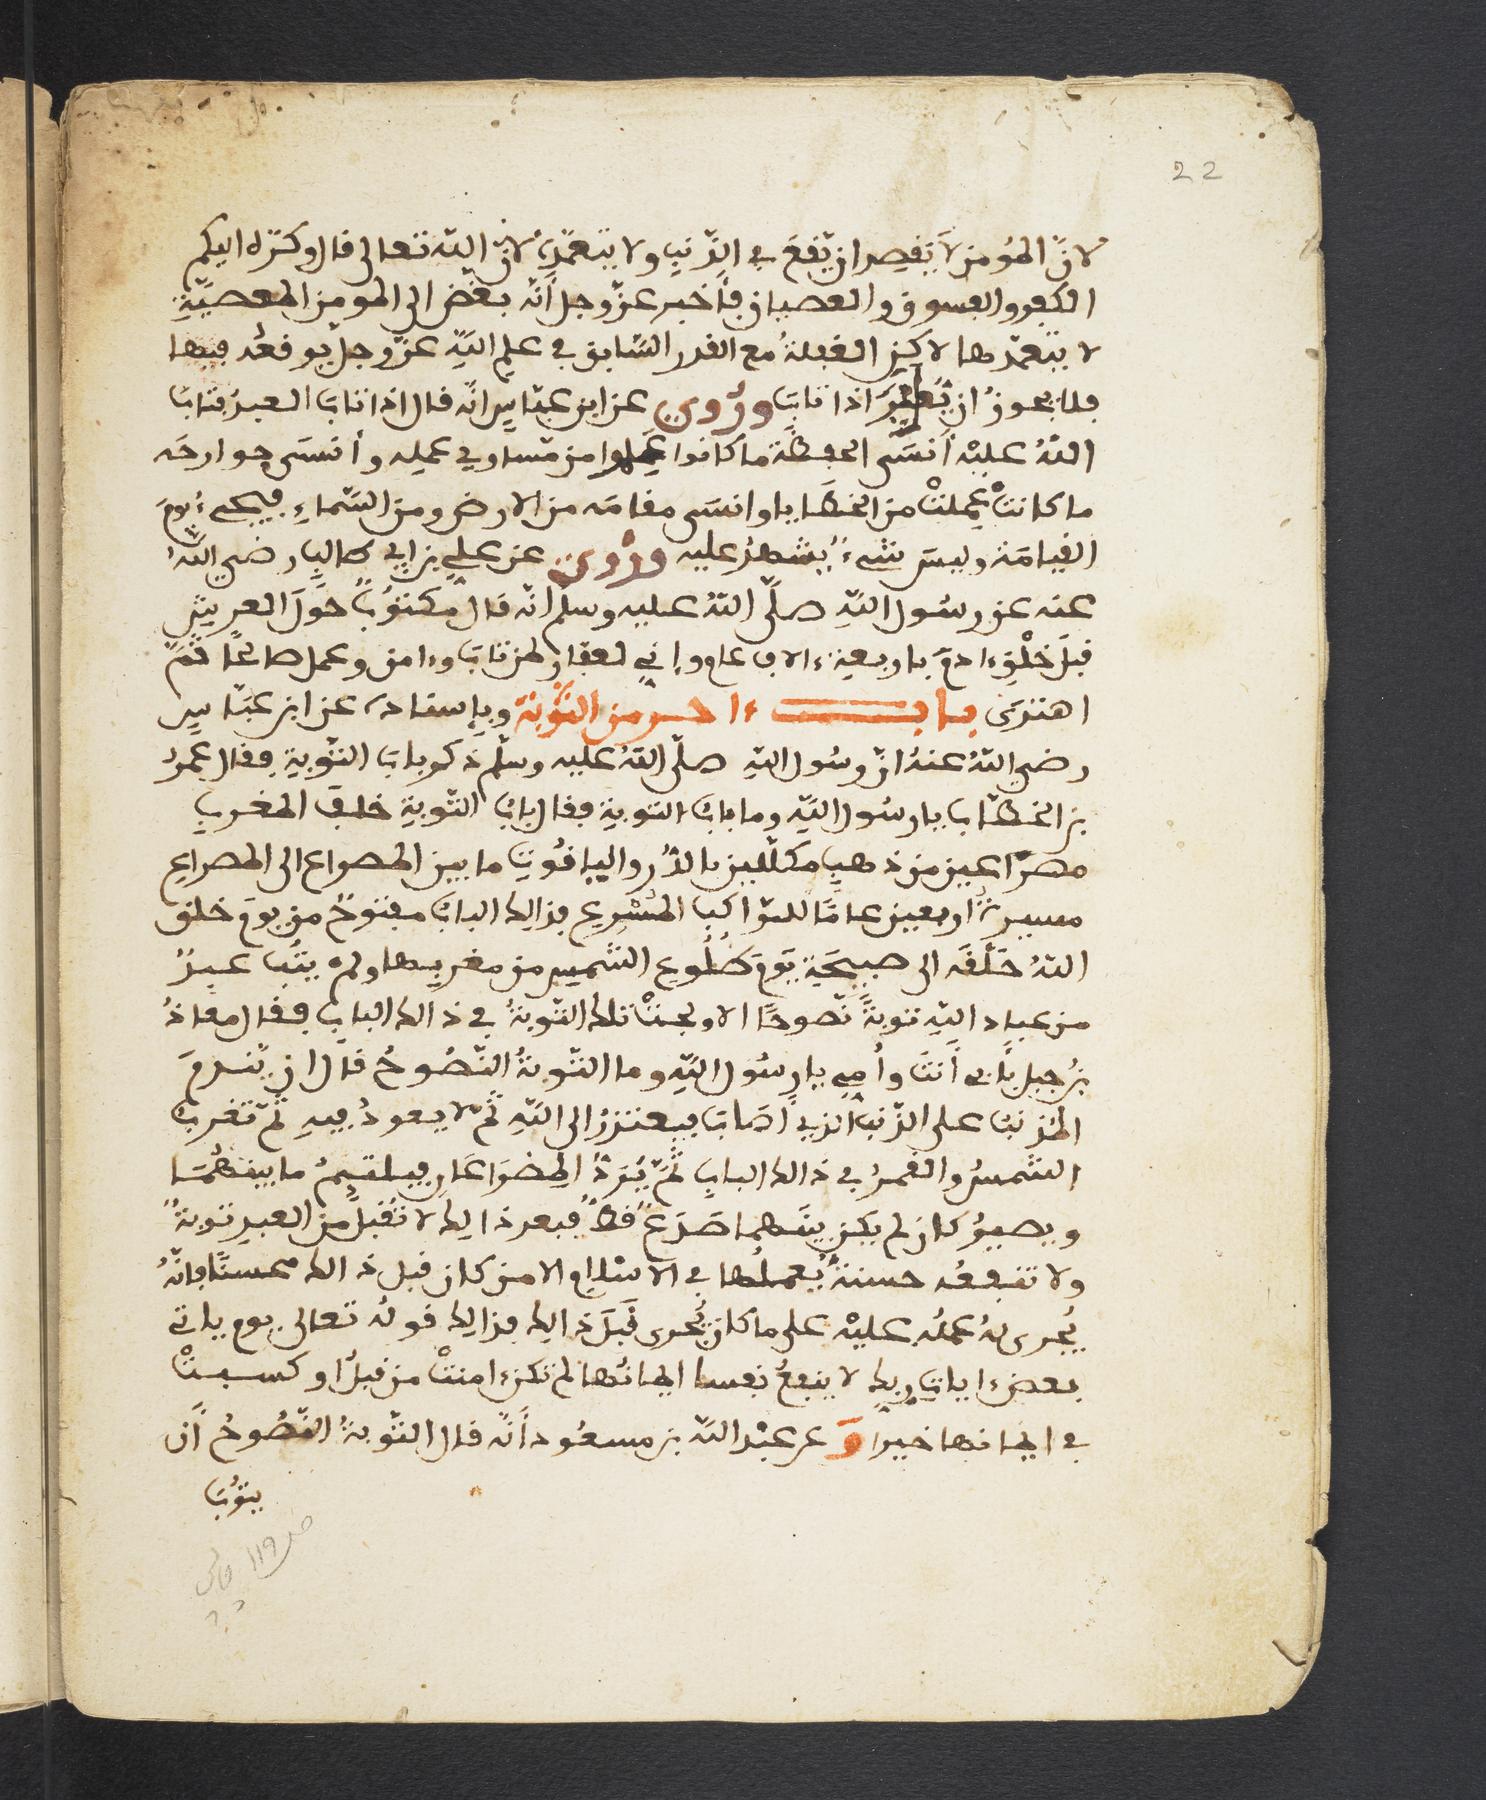 22
لانّ المُومن لا يَقصِد ان يّقعَ في الذّنبِ ولا يتعمّدُ لانّ اللّه تعالى قال وكرّه اليكم
الكفر والفسوق والعصيان فأخبر عزّ وجل أنّه بغّض الى المومن المعصيّةِ
لا يتعمّدها لاكن الغفلةُ مع القدر السّابق في علم اللّهِ عزّ وجلّ يوقعُه فيها
فلا يجوزُ ان يُعيّرَ اذا تابَ ورُوي عن ابن عبّاسٍ انّه قال اذا تابَ العبدُ فتابَ
اللّهُ عليْه أنسَى الحفظَةَ ما كانوا عَمِلوا من مّساوي عمله وأنسَى جوارحَه
ما كانتْ عملتْ من الخطَايا وانسَى مقامَه من الارض ومن السّماءِ فيجيءُ يومَ
القيامَة وليسَ شيءٌ يّشهدُ عليه ورُوي عن علي بن ابي طالب رضي اللّهُ
عنه عن رسُول اللّهِ صلّى اللّهُ عليه وسلّم انّه قال مكتوبٌ حَولَ العرشِ
قبلَ خلْقِ ءادمَ باربعةِ ءالاف عام وإنّي لغفار لمن تابَ وءامن وعمل صالحًا ثمّ
اهتدى بـاب ءاخـر من التّوْبَة وبإسناده عن ابن عبّاسٍ
رضي اللّهُ عنهُ انّ رسُول اللّهِ صلّى اللّهُ عليه وسلّم ذكر بابَ التّوبةِ فقال عمرُ
بن الخطّاب يا رسُول اللّهِ وما بابُ التوبةِ فقال بابُ التّوبةِ خلفَ المغربِ
مصرّاعين من ذهبٍ مكلّلين بالدّر والياقُوتِ ما بين المصراع الى المصراعِ
مسيرةُ اربعين عامًا للرّاكب المُسْرعِ فذالك البابُ مفتوحٌ من يومَ خلق
اللّهُ خَلْقَه الى صبيحَةِ يَومَ طُلُوع الشّمسِ من مغربها ولم يتُب عبدٌ
من عباد اللّهِ توبةً نّصوحًا الا ولجتْ تلك التّوبةُ في ذالك البابِ فقال معاذُ
بنُ جبل بأبي أنتَ وأُمي يا رسُول اللّهِ وما التّوبةُ النّصُوحُ قال ان يّندمَ
المُذنبُ على الذّنب الذي أصَابَ فيعتذرُ الى اللّهِ ثمّ لا يعودُ فيهِ ثمّ تغربُ
الشّمسُ والقمرُ في ذالك البابِ ثمّ يُرَدُّ المِصْرَاعَانِ فيلتئِمُ ما بينهُمَا
ويصيرُ كان لم يكن بينَهما صَدَعٌ قطّ فبعد ذالك لا تُقبلُ من العبدِ توبةٌ
ولا تنفعُه حسنةٌ يّعملُها في الاسْلام الا من كان قبل ذالك محسنًا فانّهُ
يُجرى لهُ عملُه عليْه على ما كان يُجرى قَبلَ ذالك فذالك قولُه تعالى يوم ياتي
بعض ءايات ربك لا ينفعُ نفسا ايمانُها لم تكن ءامنتْ من قبلُ او كسبتْ
في ايمانها خيرا وَ عن عبْد اللّه بن مسعُود أنّه قال التّوبةُ النّصُوحُ أن
يتوُبَ